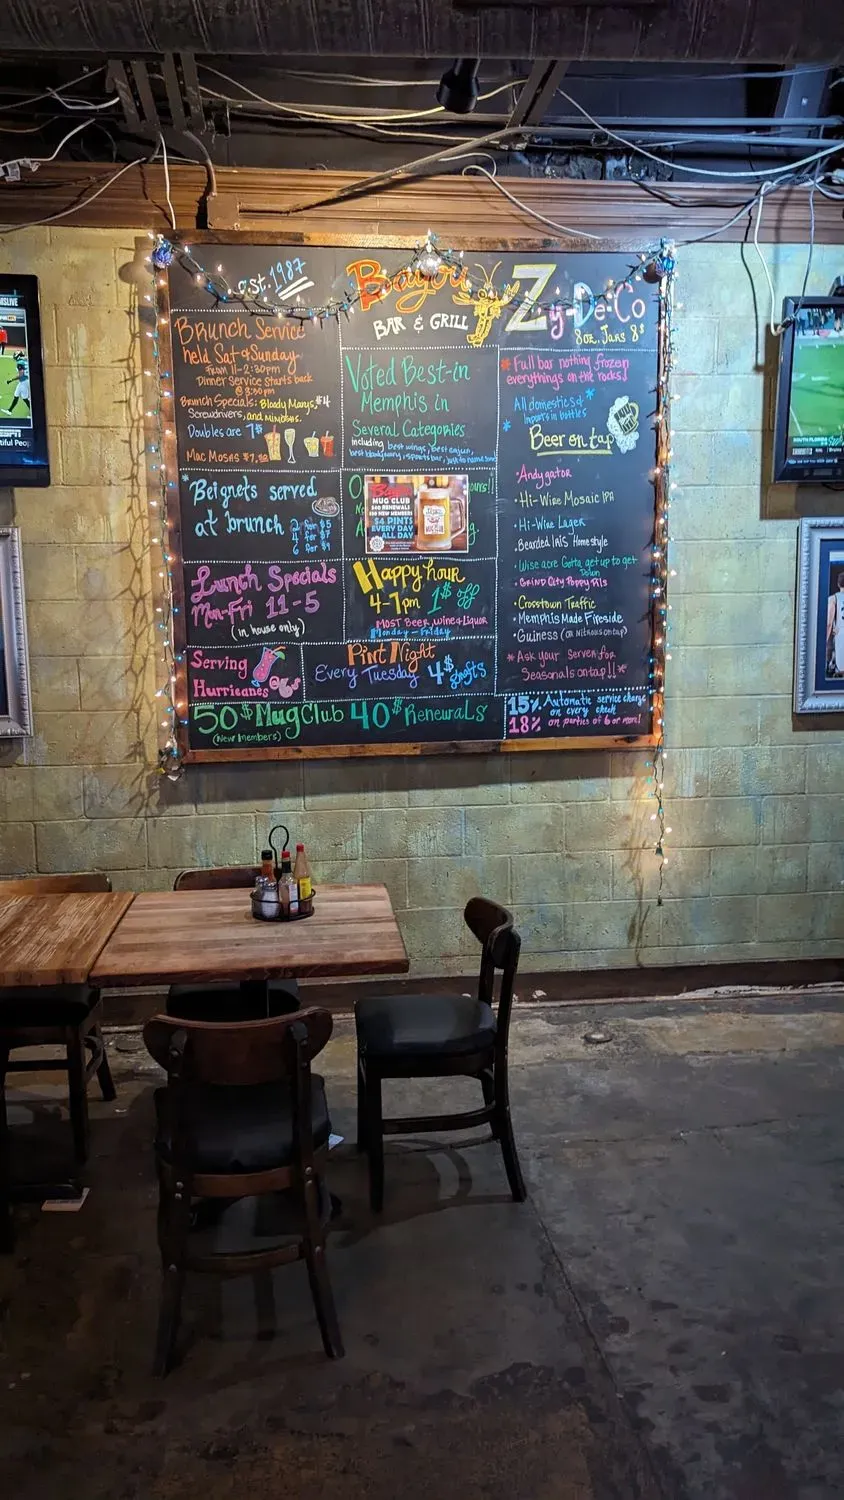 est. 1987
Bayou
BAR & GRILL
Zy-De-Co
8oz. Jars 8$
Brunch Service
held Sat & Sunday
FROM 11-2:30pm
Dinner Service Starts back
@ 3:30pm
Brunch Specials: Bloody Marys, $4
Screwdrivers, and mimosas.
Doubles are 7$
Mac Mosas $7.50
Voted Best-in
Memphis in
Several Categories
including best wings, Best cajun,
best bloody mary, sports bar, just to name some
* Full bar nothing frozen
everythings on the rocks!
* All domestics &
* Imports in bottles
Beer on tap
• Andygator
• Hi-Wire Mosaic IPA
• Hi-Wire Lager
• Bearded Iris Homestyle
• Wise acre Gotta get up to get
Down
• Grind City Poppy Pils
• Crosstown Traffic
• Memphis Made Fireside
• Guiness (on Nitrous on tap)
* Ask your Server for
Seasonals on tap!! *
* Beignets served
at brunch
2 for $5
4 for $7
6 for $9
Bayou
MUG CLUB
$40 RENEWALS
$50 NEW MEMBERS
$4 PINTS
EVERY DAY
ALL DAY
Lunch Specials
Mon-Fri 11-5
(in house only)
Happy hour
4-7pm 1$ off
MOST Beer, Wine & Liquor
Monday - Friday
Serving
Hurricanes
Pint Night
Every Tuesday 4$ drafts
50$ Mug Club 40$ Renewals
(New Members)
15% Automatic service charge
on every check
18% on parties of 6 or more!
ESPN
SOUTH FLORIDA